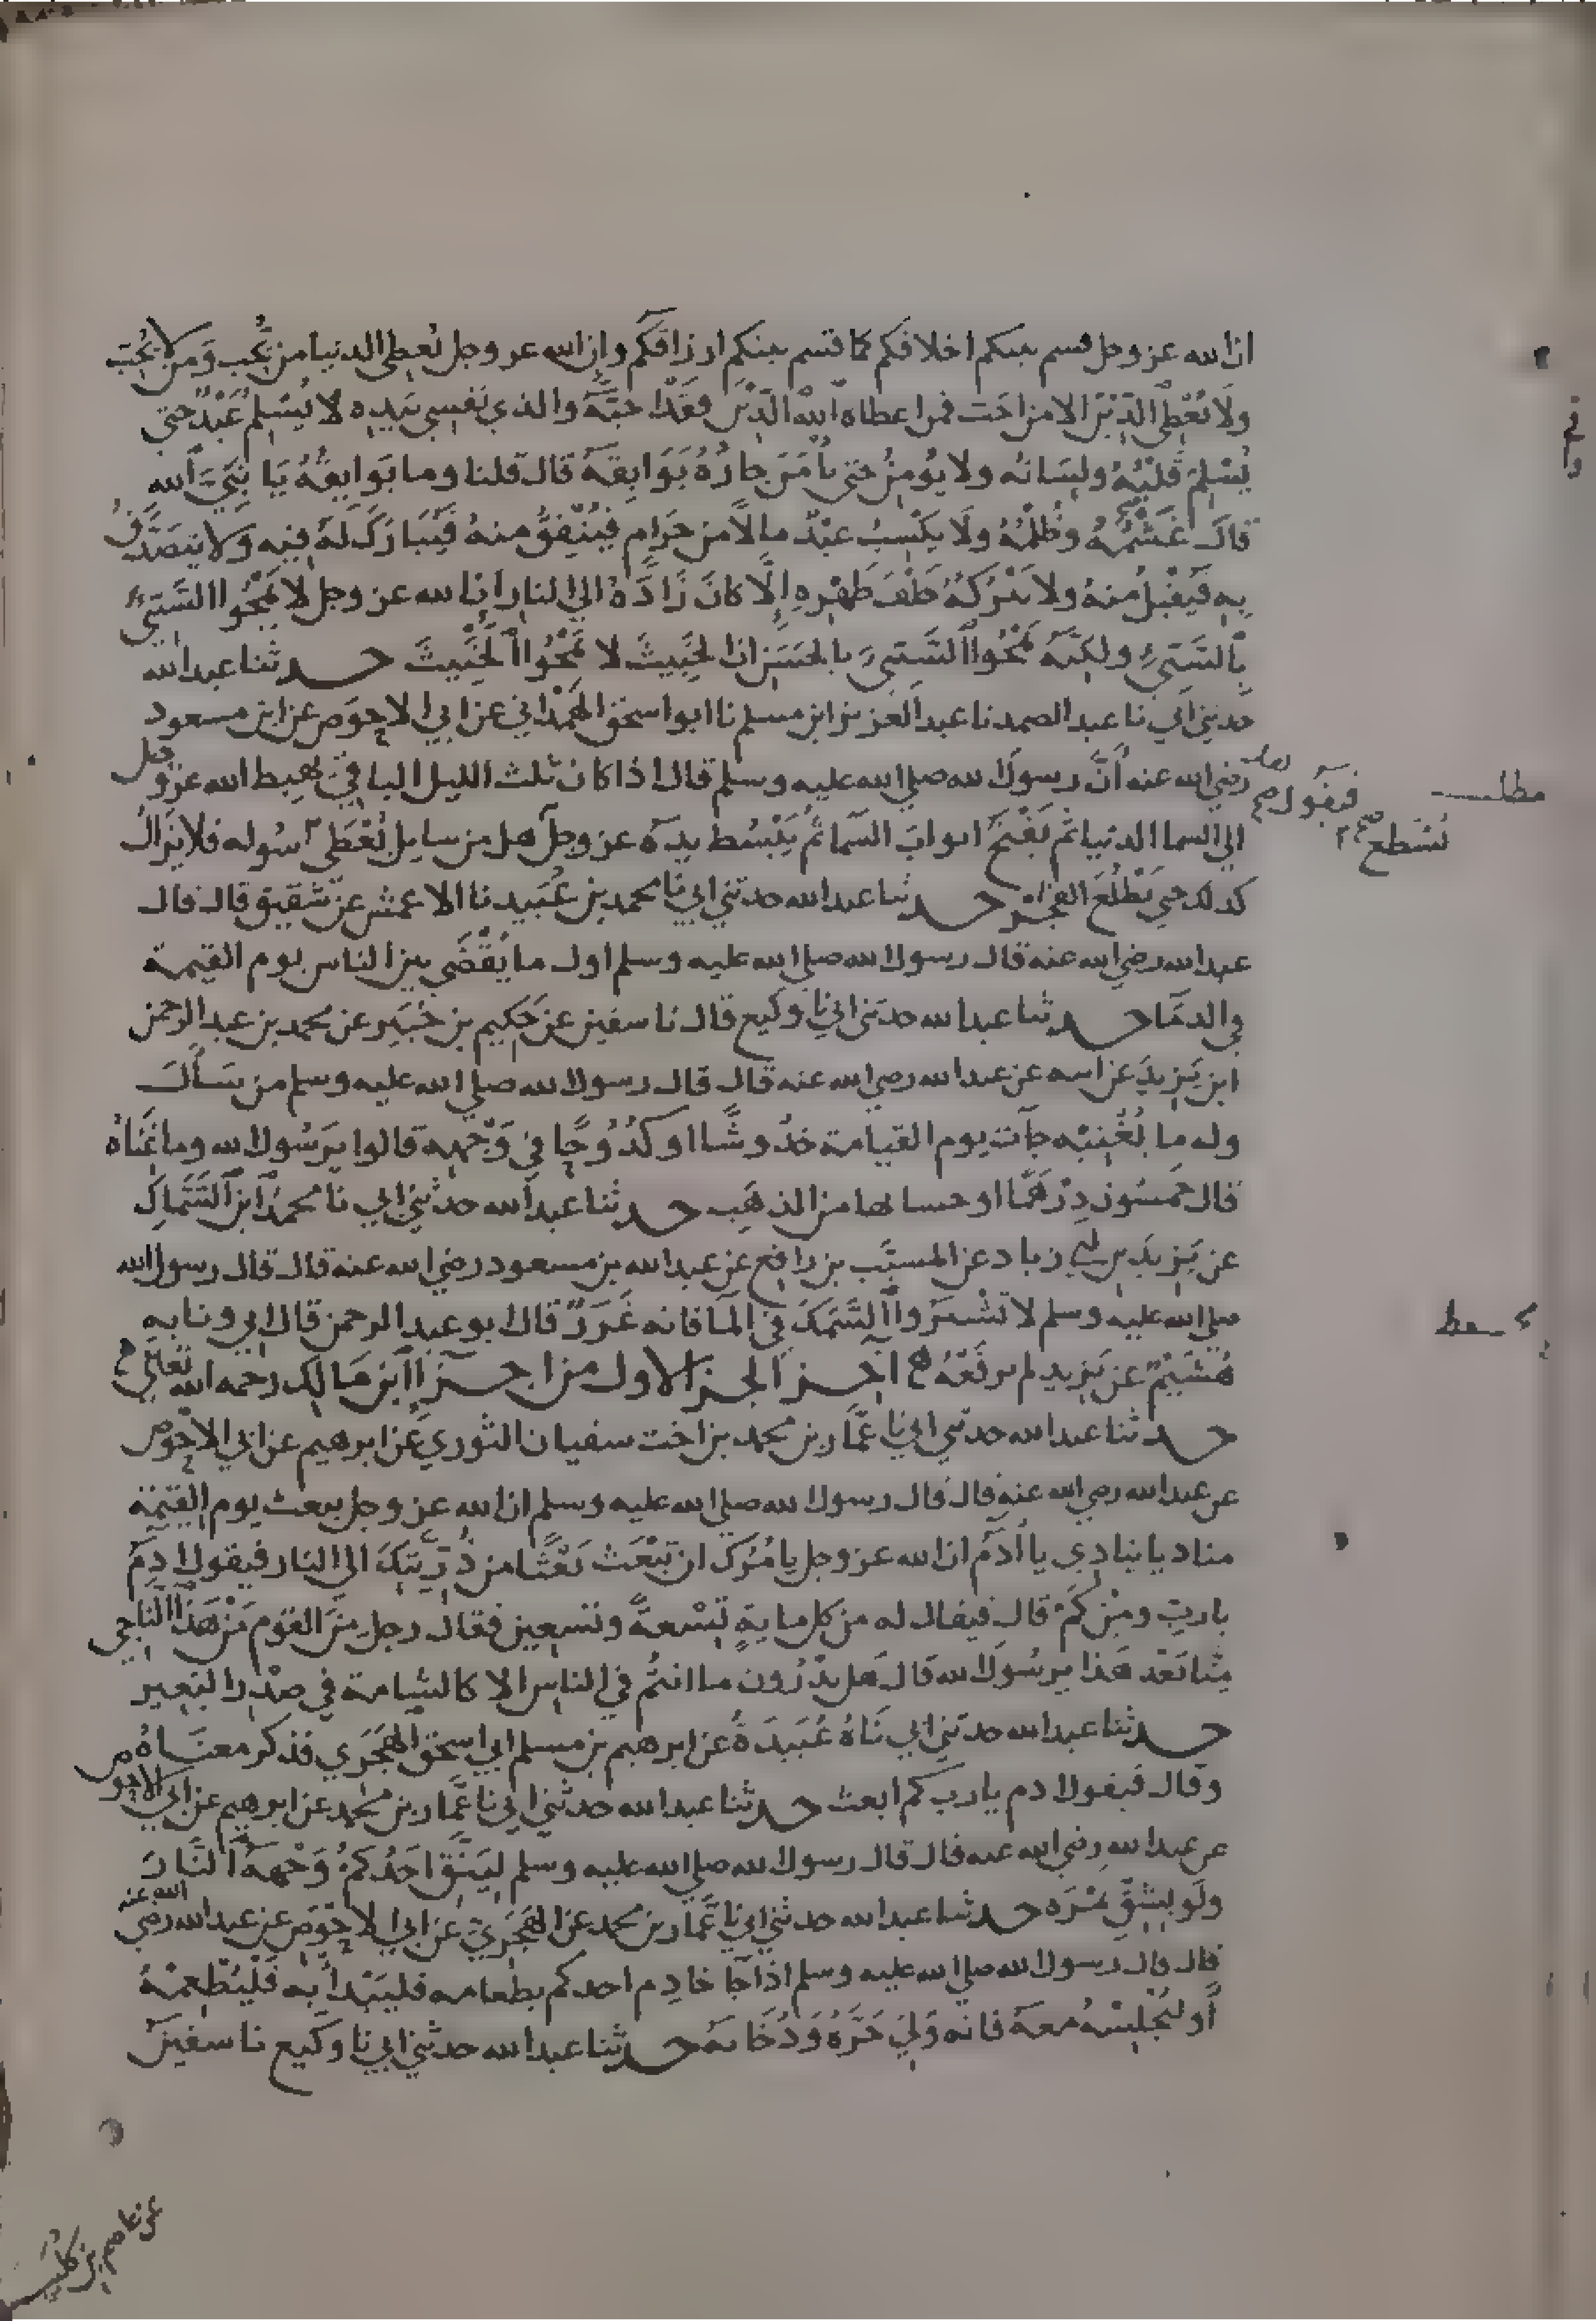 ان الله عز وجل قسم بينكم اخلاقكم كما قسم بينكم ارزاقكم وان الله عز وجل يُعطي الدنيا من يُحب ومن لا يُحِبّ
ولا يُعْطِي الدِّينَ الا من احَبّ فمن اعطاه الله الدِّينَ فقَدْ احَبَّهُ والذي نفسي بيَدِه لا يُسْلم عَبْدٌ حتى
يُسْلِمَ قَلْبُهُ ولِسَانُه ولا يُومِنُ حتى يأمَنَ جارُهُ بَوَايِقَهُ قال قلنا وما بَوَايِقُهُ يَا نَبِيَّ الله
قال غَشْمُهُ وظُلْمُهُ ولَا يكْسِبُ عبْدٌ مالًا من حَرَام فيُنْفِقُ منهُ فَيُبَارَكَ لَهُ فِيهِ ولا يتصَدَّقُ
بِهِ فَيُقْبَلُ منهُ ولا يَتْرُكَهُ خَلْفَ ظَهْرِهِ إلَّا كانَ زَادَهُ الى النار ان الله عز وجل لا يَمْحُوا السَّيِّئَ
بِالسَّيِّئِ ولكِنَّهُ يَمْحُوا السَّيِّئَ بالحَسَنِ ان الخَبِيثَ لا يَمْحُوا الخَبِيثَ حدثنا عبد الله
حدثني ابي نا عبد الصمد نا عبد العزيز ابن مسلم نا ابو اسحق الهَمْدَاني عن ابي الاحوَص عن ابن مسعود
رضي الله عنه أنَّ رسول الله صلى الله عليه وسلم قال اذا كان ثلث الليل الباقي يهبط الله عز وجل
الى السما الدنيا ثم يَفْتَحُ ابوابَ السَّما ثُمَّ يَبْسُط يدَهُ عز وجل هل من سايل يُعْطَى سُوله فلا يزَالُ
كذلك حتى يَطْلُعَ الفجر حدثنا عبد الله حدثني ابي نا محمد بن عُبَيد نا الاعمش عن شقيق قال قال
عبد الله رضي الله عنه قال رسول الله صلى الله عليه وسلم اول ما يُقْضَى بين الناس يوم القيمة
في الدمَا حدثنا عبد الله حدثني ابي نا وكيع قال نا سفين عن حَكِيم بن جُبَيْر عن محمد بن عبد الرحمن
ابن يَزيدَ عن ابيه عن عبد الله رضي الله عنه قال قال رسول الله صلى الله عليه وسلم من سَأَلَ
وله ما يُغْنِيْه جآت يوم القيامة خدُوشًا او كدُوحًا في وَجْهِه قالوا يَرَسُول الله وما غَنَاهُ
قال خمسُون دِرْهَمًا او حسابها من الذهَب حدثنا عبد الله حدثني ابي نا محمدُ ابن السَّمَاك
عن يَزيدَ بن ابي زياد عن المسيَّب بن رافع عن عبد الله بن مسعود رضي الله عنه قال قال رسول الله
صلى الله عليه وسلم لا تَشْتَرُوا السَّمَكَ في المآ فانه غَرَرٌ قال ابو عبد الرحمن قال ابي ونا به
هُشَيْمٌ عن يَزيد لم يرفَعْهُ آخر الجز الاول من اجزآ ابن مَالك رحمه الله تعالى
حدثنا عبد الله حدثني ابي نا عَمَّار بن محمد بن اخت سفيان الثوري عن ابرهيم عن ابي الاحْوَص
عن عبد الله رضي الله عنه قال قال رسول الله صلى الله عليه وسلم ان الله عز وجل يبعث يوم القِيمَة
مناديا ينادِي يا آدَمُ ان الله عز وجل يا مُرُك ان تَبْعَث بَعْثًا من ذُرِّيَّتِكَ الى النار فيقول ادَمُ
يا ربِّ ومِنْ كَمْ قال فيقال له من كل مايةٍ تِسْعةً وتسعين فقال رجل مِنَ القوم مَنْ هَذَا النَّاجي
مِنَّا بَعْد هَذا يرسُولَ الله قال هَل تدْرُون ما انتُم في الناس الا كالشامة في صدْر البَعِير
حدثنا عبد الله حدثني ابي نَاهُ عُبَيدَةُ عن ابرهيم بن مسلم ابي اسحق الهَجَرَي فذكر معنَاهُ
وقال فيقول ادم يا رب كم ابعث حدثنا عبد الله حدثني ابي نا عَمَّار بن محمد عن ابرهيم عن ابي الاحوص
عن عبد الله رضي الله عنه قال قال رسول الله صلى الله عليه وسلم ليَتَّقِ احَدُكمُ وَجْهَهُ النَّارَ
ولَو بِشِقِّ تمْرَه حدثنا عبد الله حدثني ابي نا عَمَّار بن محمد عن الهَجَرِيّ عن ابي الاحْوَص عن عبد الله رضي الله عنه
قال قال رسول الله صلى الله عليه وسلم اذا جآ خادِم احدكم بطعامه فليَبْدأ بِه فَلْيُطْعِمْهُ
أو ليُجْلِسْهُ معهُ فانه وَلِيَ حَرَّهُ وَدُخَانهُ حدثنا عبد الله حدثني ابي نا وكيع نا سفين
فيقول صح
مطلب
عن عاصم بن كليب